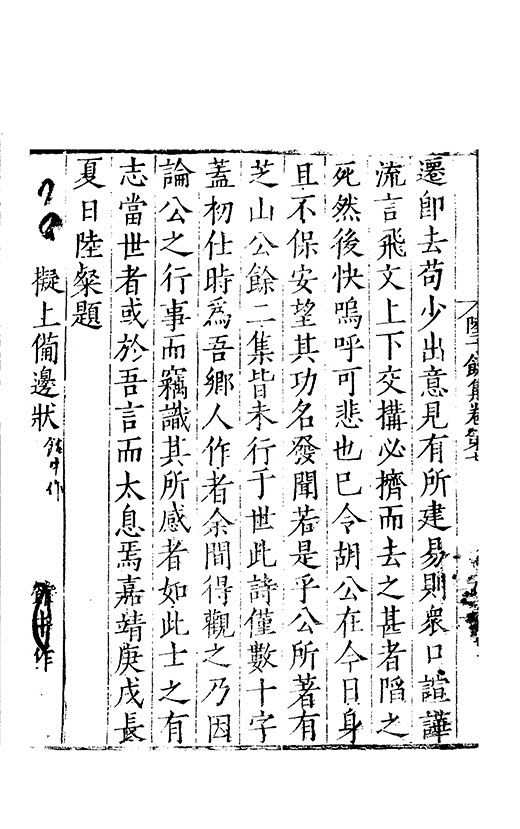 陸子餘集卷第七
遷卽去苟少出意見有所建易則衆口諠譁
流言飛文上下交搆必擠而去之甚者陷之
死然後快嗚呼可悲也已令胡公在今日身
且不保安望其功名發聞若是乎公所著有
芝山公餘二集皆未行于世此詩僅數十字
蓋初仕時爲吾鄉人作者余間得觀之乃因
論公之行事而竊識其所感者如此士之有
志當世者或於吾言而太息焉嘉靖庚戌長
夏日陸粲題
擬上備邊狀 舘中作